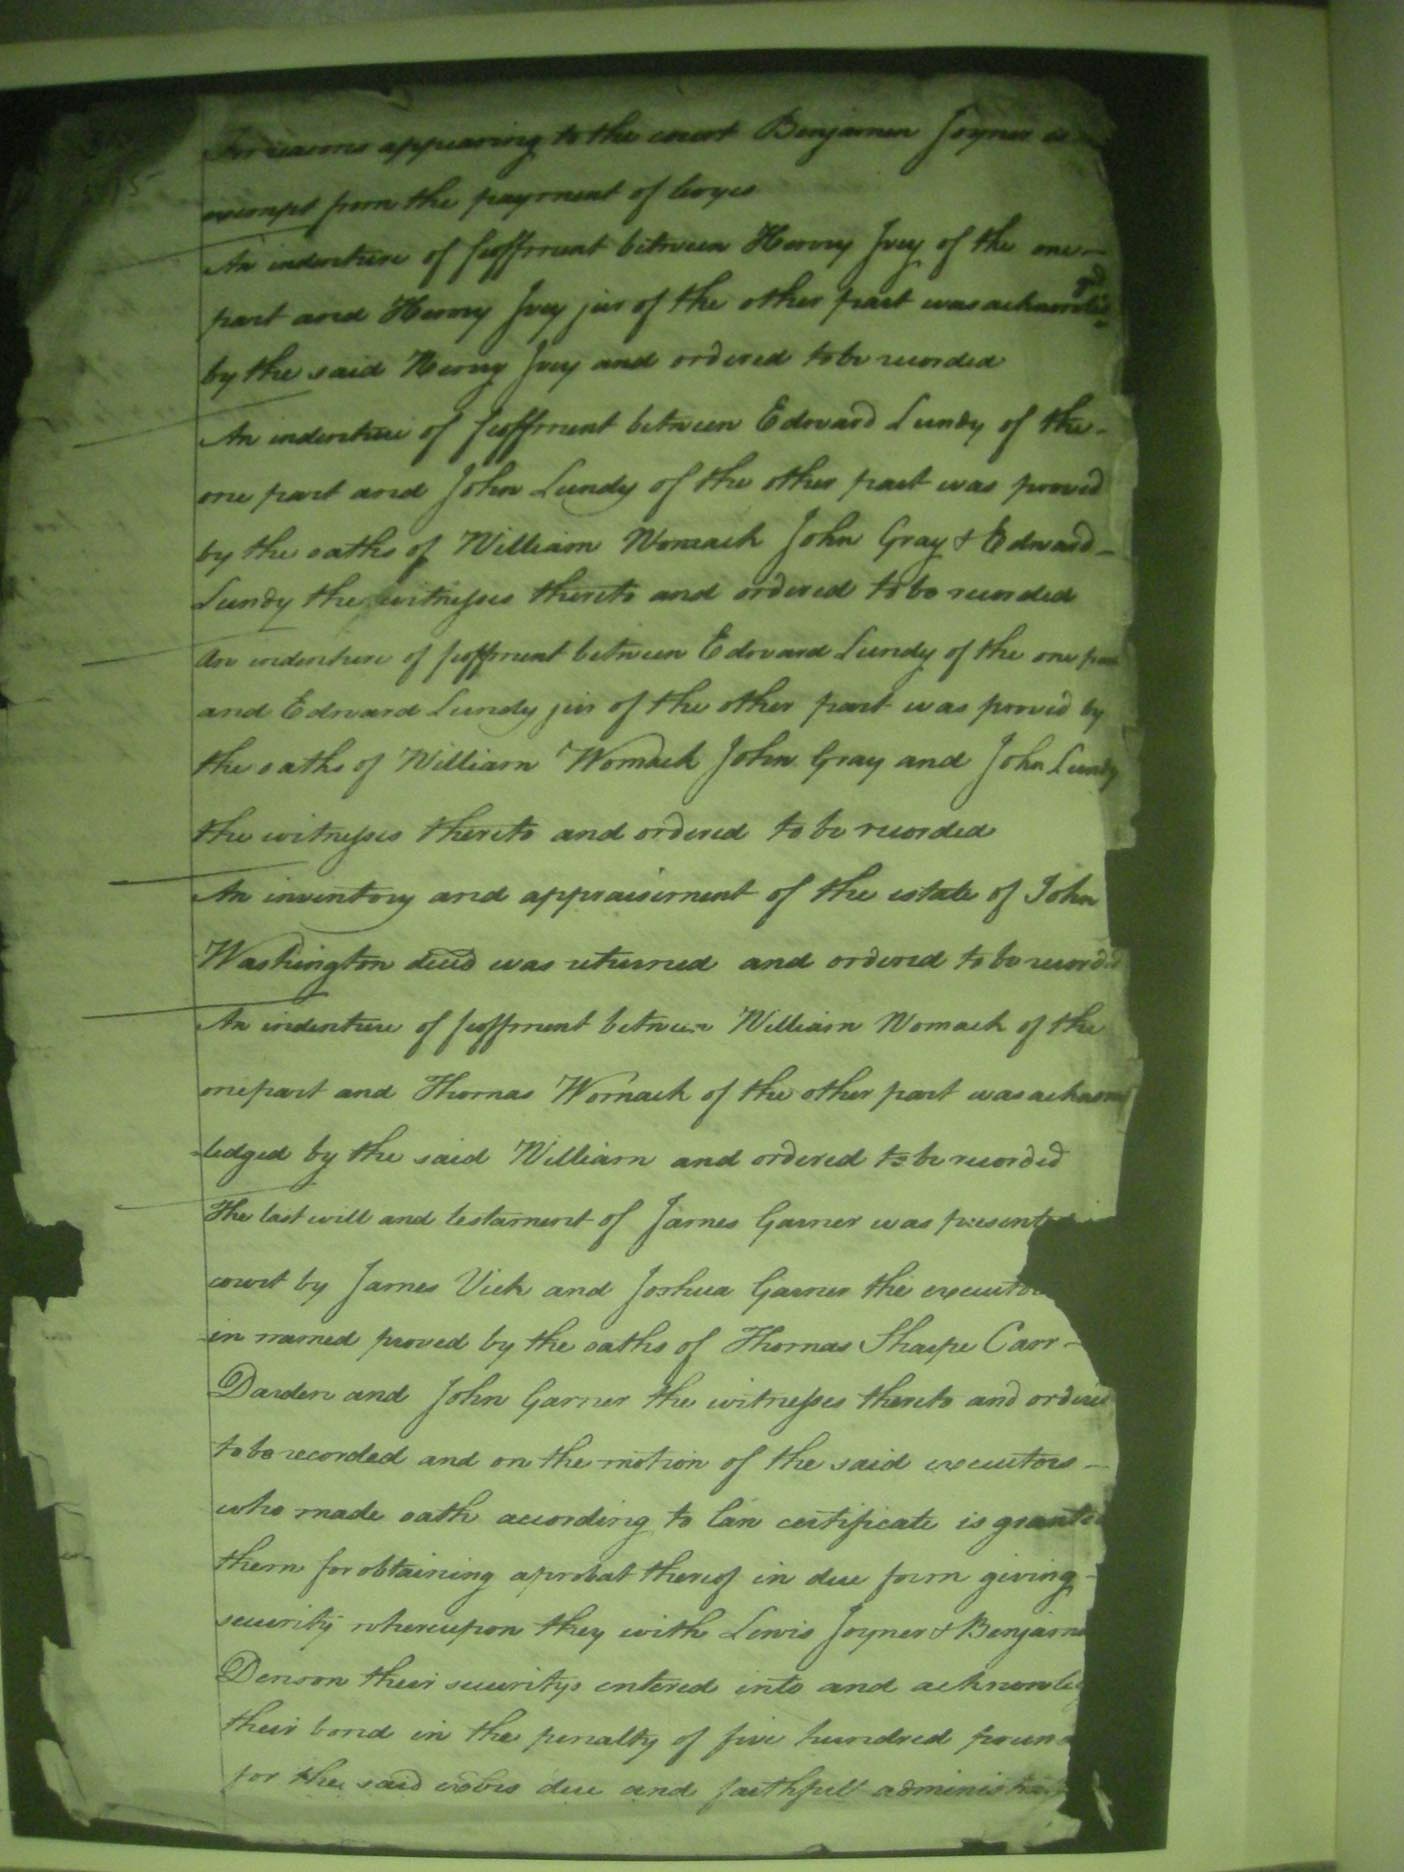 For reasons appearing to the court Benjamin Joyner is
exempt from the payment of levyes
An indenture of feoffment between Henry Ivey of the one
part and Henry Ivey jur of the other part was acknowled
by the said Henry Ivey and ordered to be recorded
An indenture of feoffment between Edward Lundy of the
one part and John Lundy of the other part was proved
by the oaths of William Womack John Gray & Edward
Lundy the witnesses thereto and ordered to be recorded
An indenture of feoffment between Edward Lundy of the one part
and Edward Lundy jur of the other part was proved by
the oaths of William Womack John Gray and John Lundy
the witnesses thereto and ordered to be recorded
An inventory and appraisement of the estate of John
Washington decd was returned and ordered to be recorded
An indenture of feoffment between William Womack of the
one part and Thomas Womack of the other part was acknow
ledged by the said William and ordered to be recorded
The last will and testament of James Garner was presented
court by James Vick and Joshua Garner the executo
in named proved by the oaths of Thomas Sharpe Carr
Darden and John Garner the witnesses thereto and ordered
to be recorded and on the motion of the said executors
who made oath according to law certificate is granted
them for obtaining a probat thereof in due form giving
security whereupon they with Lewis Joyner & Benjamin
Denson their securitys entered into and acknowledg
their bond in the penalty of five hundred pound
for the said exŏrs due and faithfull administra